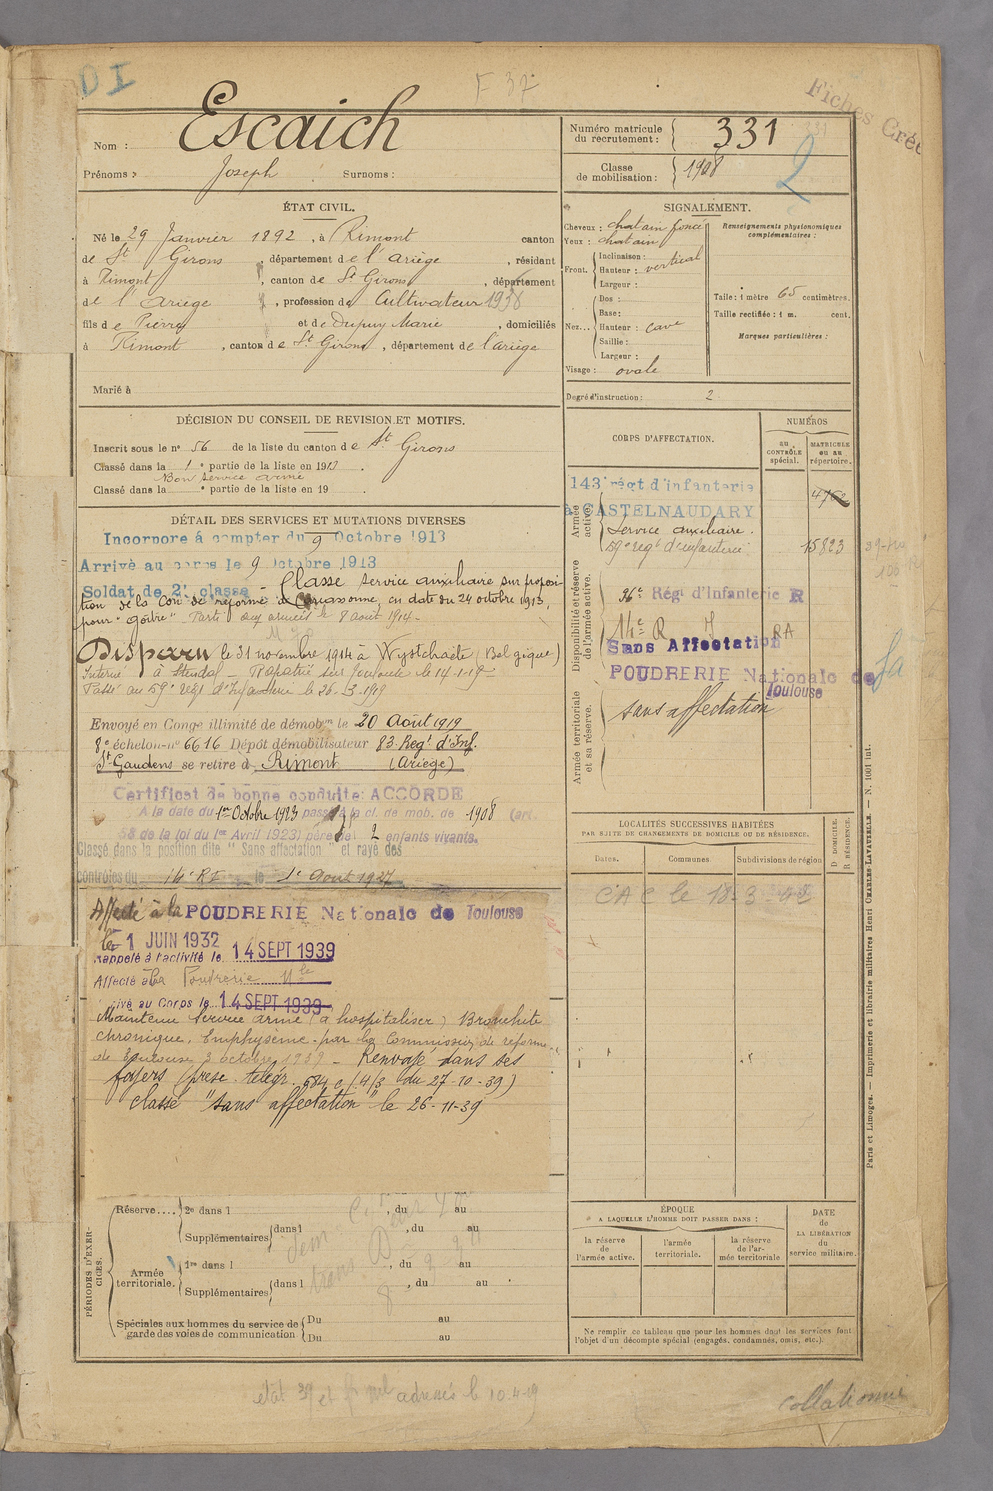 DI
F 37
Fiches Créé
Nom : Escaich
Prénoms : Joseph Surnoms :
Numéro matricule du recrutement : 331
Classe de mobilisation : 1908
2
ÉTAT CIVIL.
Né le 29 Janvier 1892, à Rimont canton
de St Girons, département de l'Ariège, résidant
à Rimont, canton de St Girons, département
de l'Ariège, profession de Cultivateur 1938
fils de Pierre et de Dupuy Marie, domiciliés
à Rimont, canton de St Girons, département de l'ariège
Marié à
SIGNALEMENT.
Cheveux : chatain foncé
Yeux : chatain
Front.
Inclinaison :
Hauteur : vertical
Largeur :
Nez...
Dos :
Base :
Hauteur : cave
Saillie :
Largeur :
Visage : ovale
Renseignements physionomiques complémentaires :
Taille : 1 mètre 65 centimètres.
Taille rectifiée : 1 m. cent.
Marques particulières :
Degré d'instruction : 2
DÉCISION DU CONSEIL DE REVISION ET MOTIFS.
Inscrit sous le n° 56 de la liste du canton de St Girons
Classé dans la 1e partie de la liste en 191
Bon service armé
Classé dans la e partie de la liste en 19 .
CORPS D'AFFECTATION.
NUMÉROS
AU CONTRÔLE spécial.
MATRICULE ou au répertoire.
Armée active.
143e régt d'infanterie
à CASTELNAUDARY
4762
Service auxiliaire.
59e regt d'infanterie 15823
Disponibilité et réserve de l'armée active.
96e Régt d'Infanterie R
14e R I RA
Sans Affectation
POUDRERIE Nationale de Toulouse
Armée territoriale et sa réserve.
sans affectation
DÉTAIL DES SERVICES ET MUTATIONS DIVERSES
Incorporé à compter du 9 Octobre 1913
Arrivé au corps le 9 Octobre 1913
Soldat de 2e classe - Classé service auxiliaire sur proposi-
tion de la Con de réforme de Carcassonne, en date du 24 octobre 1913,
pour "goître" Parti aux armées le 8 août 1914 -
Disparu le 31 novembre 1914 à Wystchaëte (Belgique)
Interné à Stendal - Rapatrié sur Toulouse le 14-1-19
Passé au 59e Régt d'Infanterie le 26-3-1919
Envoyé en Congé illimité de démobon le 20 Août 1919
8e échelon n° 6616 Dépôt démobilisateur 83 Regt d'Inf.
St Gaudens se retire à Rimont (Ariège)
Certificat de bonne conduite: ACCORDÉ
A la date du 1er Octobre 1923 passe à la cl. de mob. de 1908 (art.
58 de la loi du 1er Avril 1923) père de 2 enfants vivants.
Classé dans la position dite "Sans affectation" et rayé des
contrôles du 14e RI le 1e Aout 1927
Affecté à la POUDRERIE Nationale de Toulouse
le 1 JUIN 1932
Rappelé à l'activité le 14 SEPT 1939
Affecté à la Poudrerie Nle
Arrivé au Corps le 14 SEPT 1939
Maintenu Service armé (à hospitaliser) Bronchite
chronique. Emphysème - par la Commission de réforme
de Toulouse 3 octobre 1939 - Renvoyé dans ses
foyers (prese. telegr. 584 c/4/3 du 27-10-39)
classé "sans affectation" le 26-11-39
LOCALITÉS SUCCESSIVES HABITÉES
PAR SUITE DE CHANGEMENTS DE DOMICILE OU DE RÉSIDENCE.
Dates.
Communes.
Subdivisions de région
D DOMICILE.
R RÉSIDENCE.
CAC le 18-3-42
PÉRIODES D'EXERCICES.
Réserve.... 2e dans l , du au
Supplémentaires dans l , du au
Armée territoriale. 1re dans l , du au
Supplémentaires dans l , du au
Spéciales aux hommes du service de garde des voies de communication
Du au
Du au
ÉPOQUE
A LAQUELLE L'HOMME DOIT PASSER DANS :
la réserve de l'armée active.
l'armée territoriale.
la réserve de l'armée territoriale
DATE de LA LIBÉRATION du service militaire.
Ne remplir ce tableau que pour les hommes dont les services font l'objet d'un décompte spécial (engagés, condamnés, omis, etc.).
Paris et Limoges. — Imprimerie et librairie militaires Henri CHARLES-LAVAUZELLE. — N. 1001 int.
adressés le 10-4-19
collationné